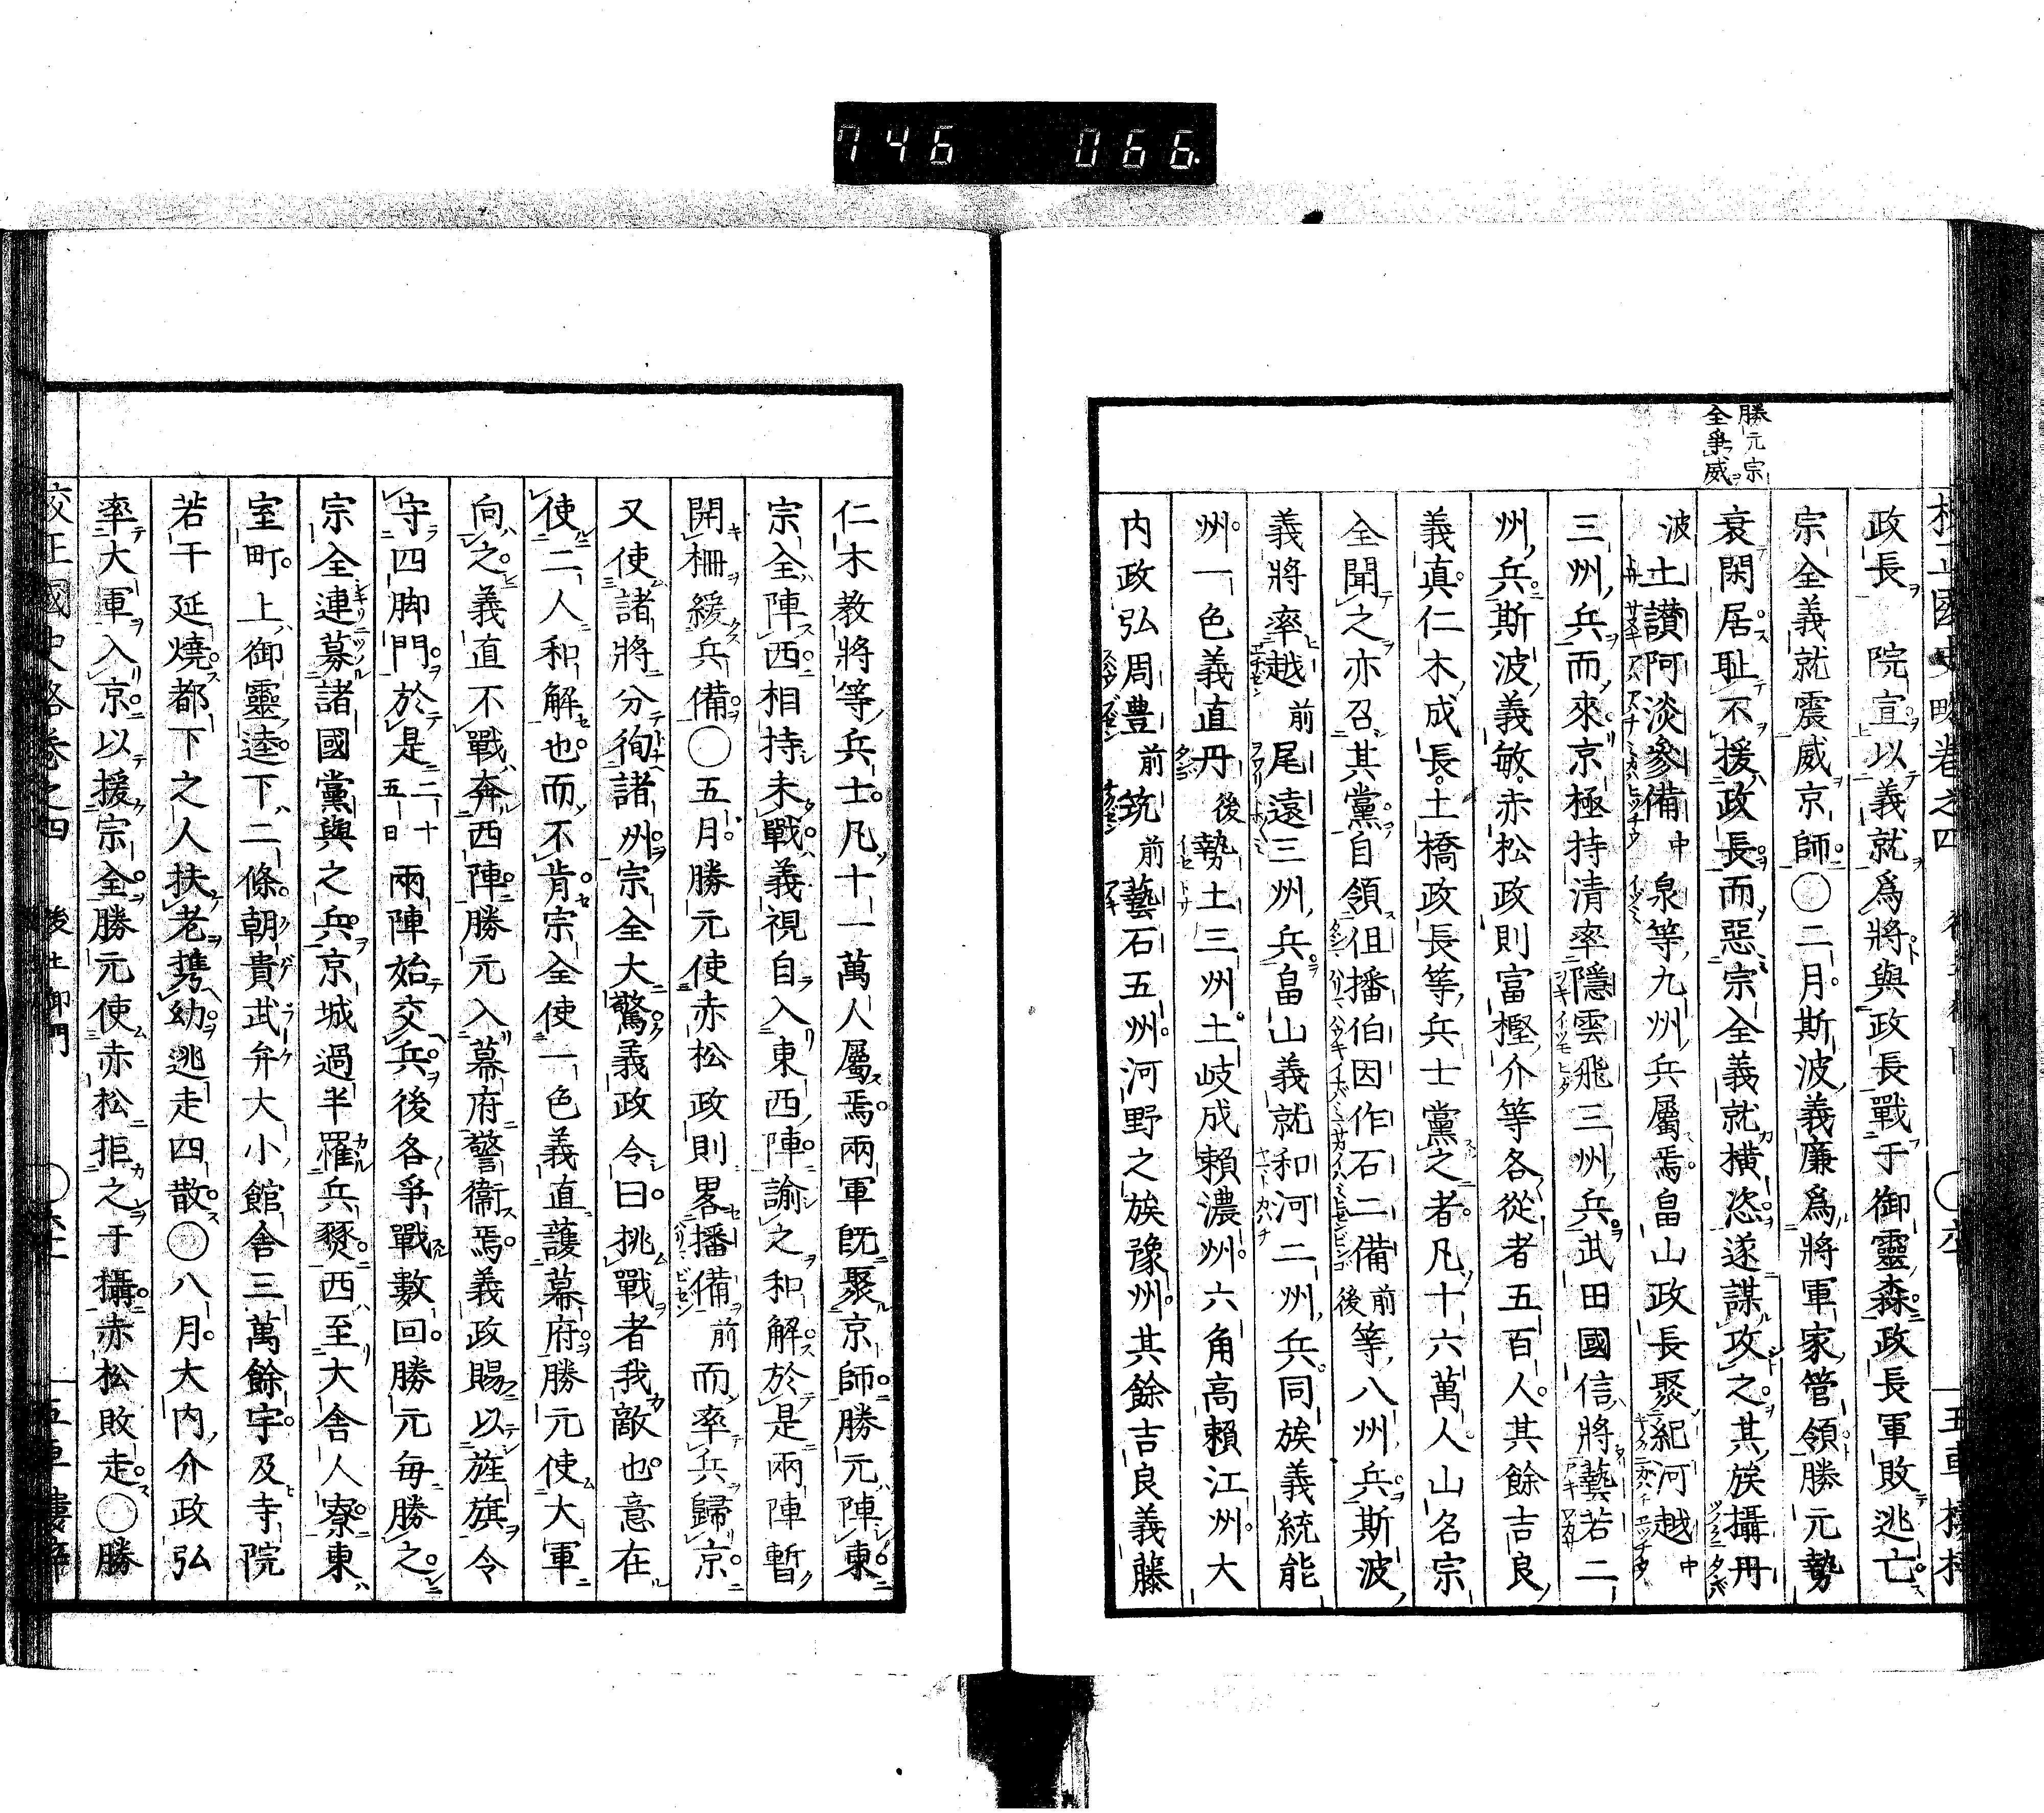 746 066
勝元宗
全爭威
政長 院宣以義就爲將與政長戰于御靈森政長軍敗逃亡
宗全義就震威京師○二月斯波義廉爲將軍家管領勝元勢
衰閑居耻不援政長而惡宗全義就橫恣遂謀攻之其族攝丹
波土讃阿淡參備中泉等九州兵屬焉畠山政長聚紀河越中
三州兵而來京極持清率隱雲飛三州兵武田國信將藝若二
州兵斯波義敏赤松政則富樫介等各從者五百人其餘吉良
義真仁木成長土橋政長等兵士黨之者凡十六萬人山名宗
全聞之亦召其黨自領伹播伯因作石二備前後等八州兵斯波
義將率越前尾遠三州兵畠山義就和河二州兵同族義統能
州一色義直丹後勢土三州土岐成頼濃州六角高頼江州大
内政弘周豊前筑前藝石五州河野之族豫州其餘吉良義藤
仁木教將等兵士凡十一萬人屬焉兩軍既聚京師勝元陣東
宗全陣西相持未戰義視自入東西陣諭之和解於是兩陣暫
開柵緩兵備○五月勝元使赤松政則畧播備前而率兵歸京
又使諸將分徇諸州宗全大驚義政令曰挑戰者我敵也意在
使二人和解也而不肯宗全使一色義直護幕府勝元使大軍
向之義直不戰奔西陣勝元入幕府警衞焉義政賜以旌旗令
守四脚門於是二十五日兩陣始交兵後各爭戰數回勝元毎勝之
宗全連募諸國黨與之兵京城過半羅兵燹西至大舎人寮東
室町上御靈逵下二條朝貴武弁大小館舎三萬餘宇及寺院
若干延燒都下之人扶老携幼逃走四散○八月大内介政弘
率大軍入京以援宗全勝元使赤松拒之于攝赤松敗走○勝
校正國史略卷之四 後土御門 五車樓梓